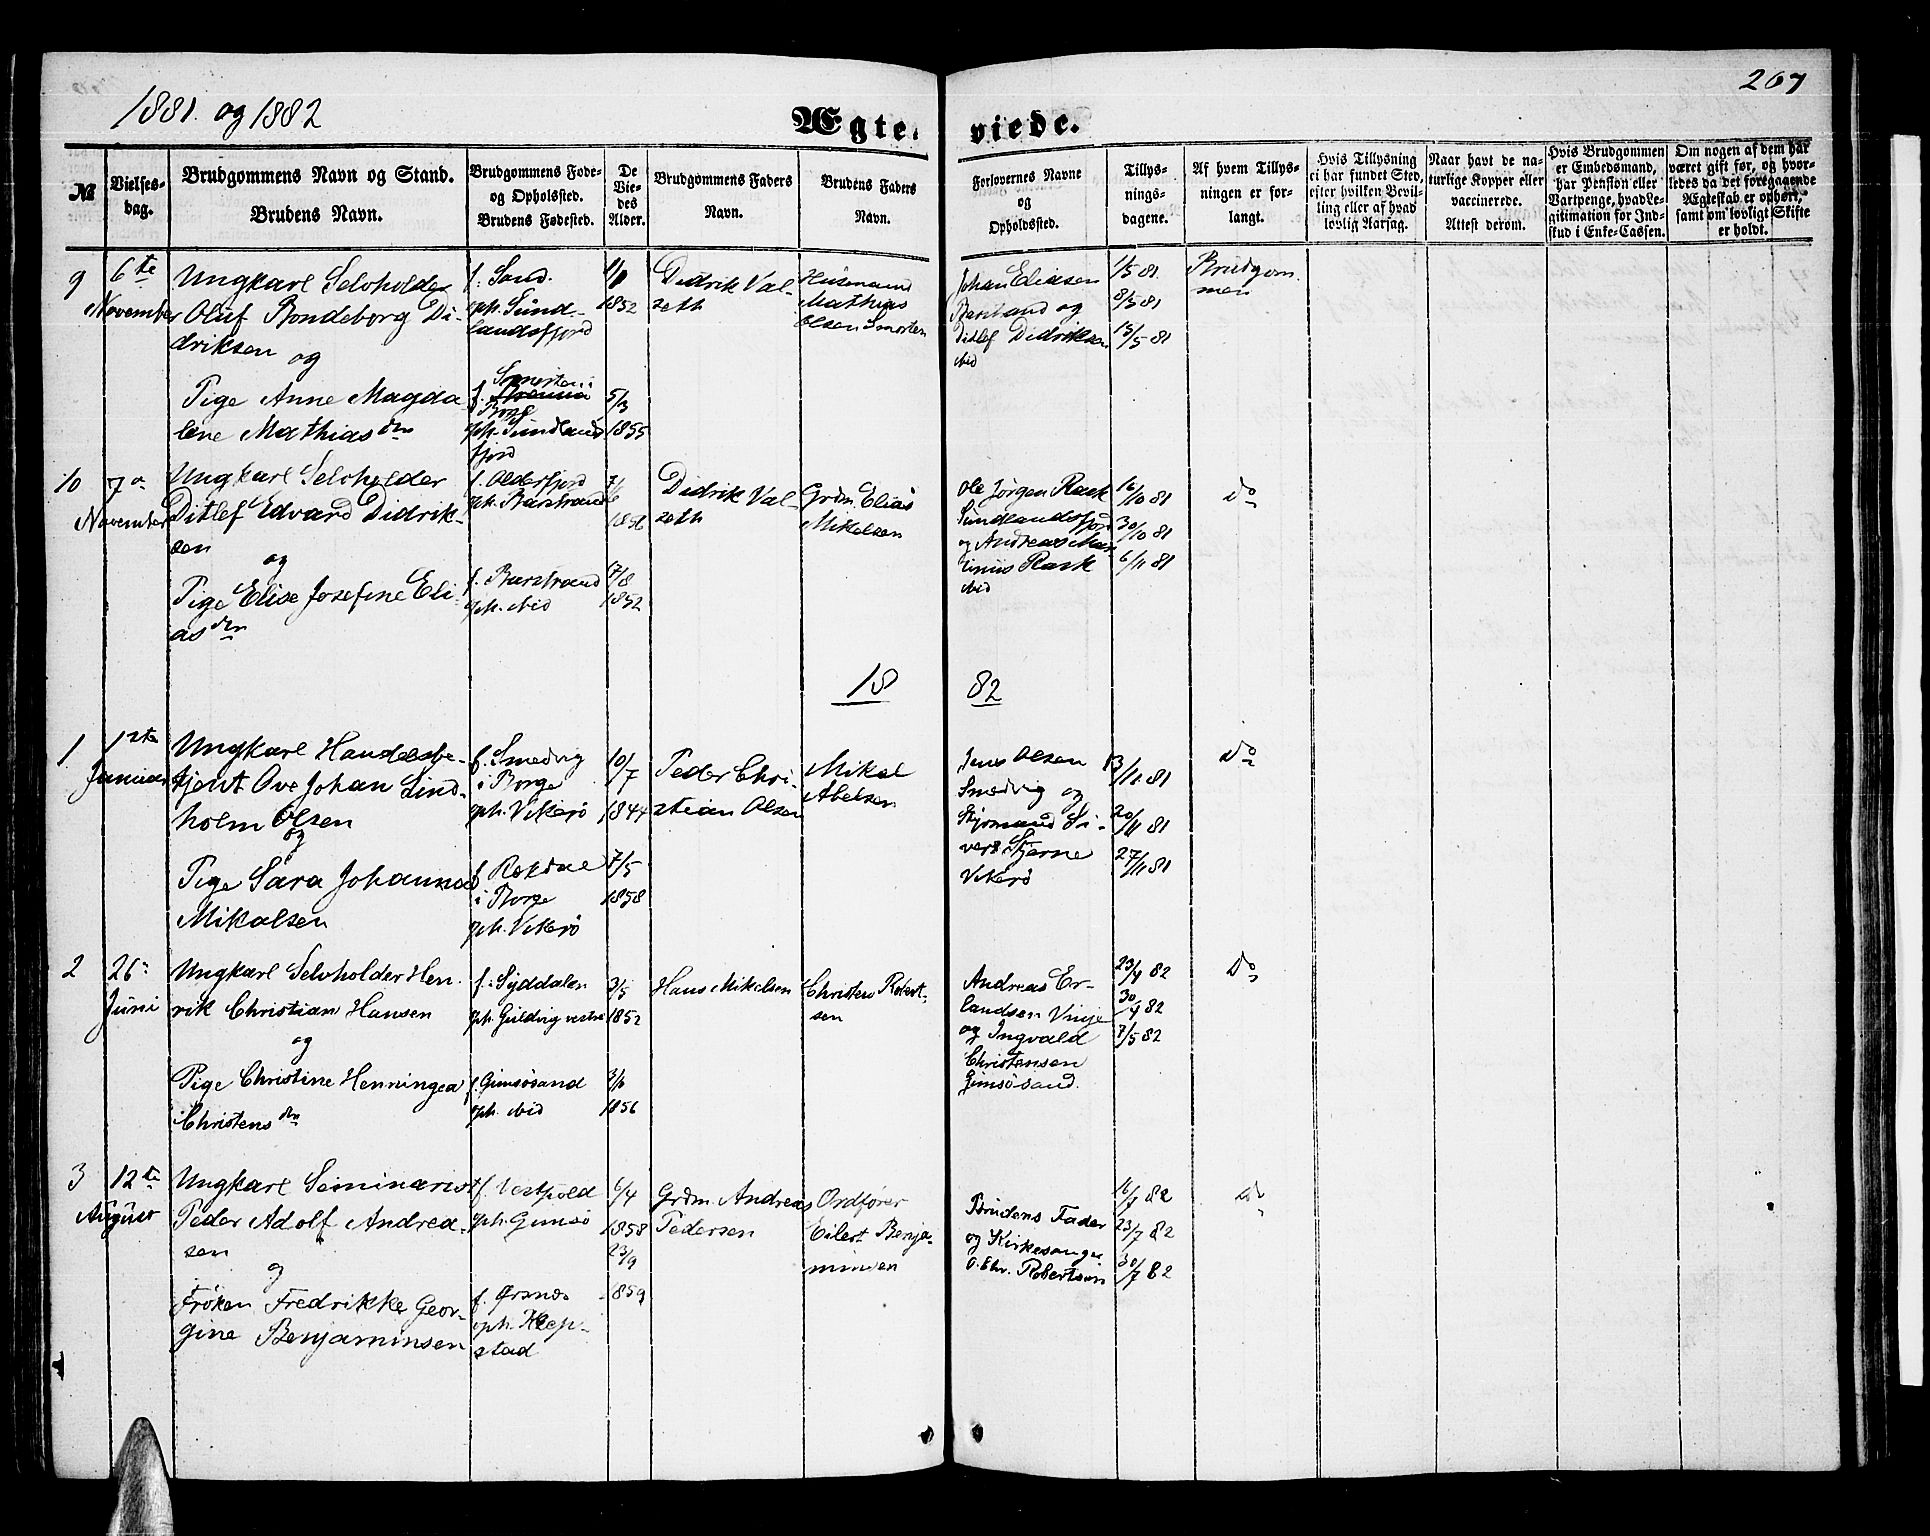 1881. og 1882
Ægte-
viede.
267
№
Vielses-
dag.
Brudgommens Navn og Stand.
Brudens Navn.
Brudgommens Føde-
og Opholdssted.
Brudens Fødested.
De
Vie-
des
Alder.
Brudgommens Faders
Navn.
Brudens Faders
Navn.
Forlovernes Navne
og
Opholdssted.
Tillys-
nings-
dagene.
Af hvem Tillys-
ningen er for-
langt.
Hvis Tillysning
ei har fundet Sted,
efter hvilken Bevil-
ling eller af hvad
lovlig Aarsag.
Naar havt de na-
turlige Kopper eller
vaccinerede.
Attest derom.
Hvis Brudgommen
er Embedsmand,
har Pension eller
Vartpenge, hvad Le-
gitimation for Ind-
skud i Enke-Cassen.
Om nogen af dem har
været gift før, og hvor-
ledes da det foregaaende
Ægteskab er ophørt,
samt om lovligt Skifte
er holdt.
9
6te
November
Ungkarl Selvholder
Oluf Rondeborg Di-
driksen
og
Pige Anne Magda
lene Mathiasdtr
f. Sand.
oph. Sund-
landsfjord
Smorten i
Borge
oph. Sundlands
fjord
1852
5/3
1855
Didrik Val-
seth
Husmand
Mathias
Olsen Smorten
Johan Eliasen
Barstrand og
Ditlef Didriksen
ibid
1/5 81.
8/5 81
15/5 81
Brudgom
men
10
7de
November
Ungkarl Selvholder
Ditlef Edvard Didrik-
sen
og
Pige Elise Josefine Eli-
asdtr
f. Olderfjord
oph. Barstrand
f. Barstrand
oph. ibid
7/6
1856
7/8
1852
Didrik Val-
seth
Grdm. Elias
Mikelsen
Ole Jørgen Rask
Sundlandsfjord
og Andreas Mar
tinius Rask
ibid
16/10 81
30/10 81
6/11 81
Do
18 82
1
1ste
Januar
Ungkarl Handelsbe-
tjent Ove Johan Lind-
holm Olsen
og
Pige Sara Johanna
Mikalsen
f. Smedvig
i Borge
oph. Vikerø
f. Rekdal
i Borge
oph. Vikerø
10/7
1844
7/5
1858
Peder Chri-
stian Olsen
Mikal
Abelsen
Jens Olsen
Smedvig og
Styrmand Si-
vert Stjerne
Vikerø
13/11 81
20/11 81
27/11 81
Do
2
26de
Juni
Ungkarl Selvholder Hen-
rik Christian Hansen
og
Pige Christine Henningea
Christensdtr
f. Syddalen
oph. Guldvig vestre
f. Gimsøsand
oph. ibid
3/5
1852
1856
Hans Mikelsen
Christen Robert-
sen
Andreas Er-
landsen Vinje
og Ingvald
Christensen
Gimsøsand.
23/4 82
30/4 82
7/5 82
Do
3
12te
August
Ungkarl Seminarist
Peder Adolf Andrea-
sen
og
Frøken Fredrikke Geor-
gine Benjaminsen
f. Vestpold
oph. Gimsø
f. Ørsnes
oph. Klep-
stad
6/4
1858
23/9
1859
Grdm. Andreas
Pedersen
Ordfører
Eilert Benja-
minsen
Brudens Fader
og Kirkesanger
O. Chr. Robertsen
16/7 82
23/7 82
30/7 82
Do